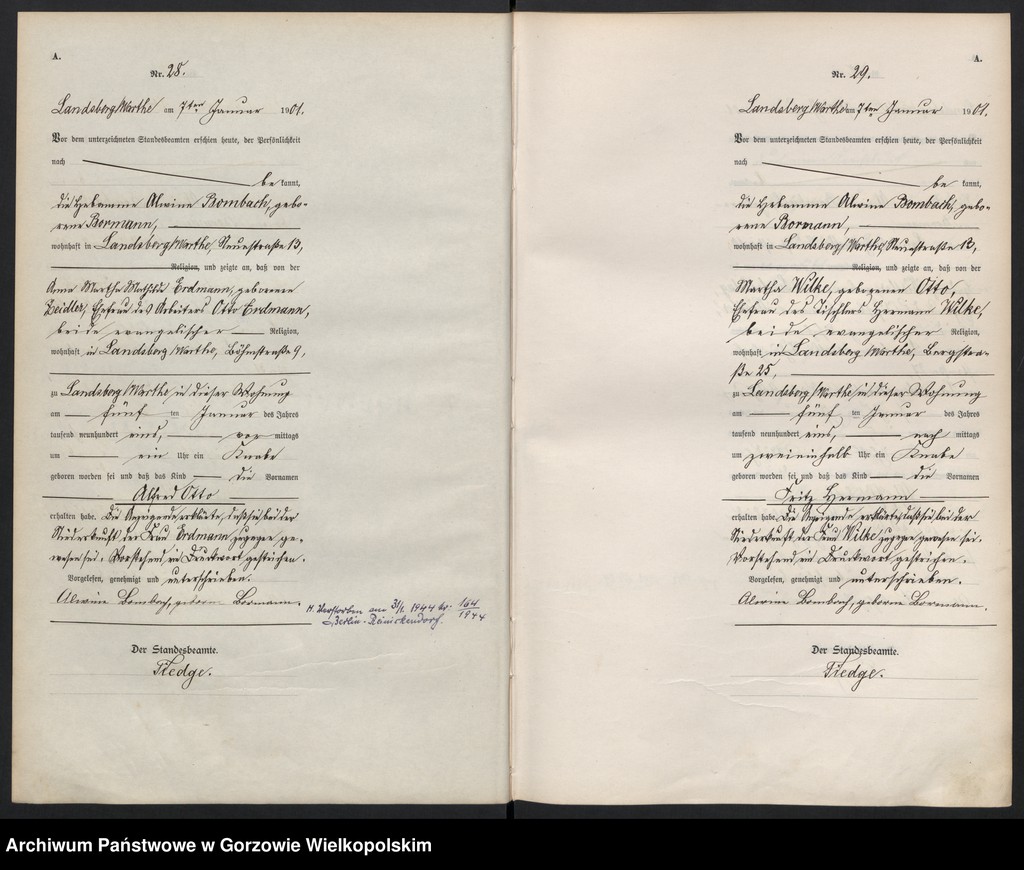 A.
Nr. 28.
Landsberg/Warthe am 7ten Januar 1901.
Vor dem unterzeichneten Standesbeamten erschien heute, der Persönlichkeit
nach
be kannt,
die Hebamme Alwine Bombach, gebo-
rene Bormann,
wohnhaft in Landsberg/Warthe, Neuestraße 13,
Religion, und zeigte an, daß von der
Anna Martha Mathilde Erdmann, geborenen
Zeidler, Ehefrau des Arbeiters Otto Erdmann,
beide evangelischer Religion,
wohnhaft in Landsberg/Warthe, Böhmstraße 9,
zu Landsberg/Warthe in dieser Wohnung
am fünf ten Januar des Jahres
tausend neunhundert eins, vor mittags
um ein Uhr ein Knabe
geboren worden sei und daß das Kind die Vornamen
Alfred Otto
erhalten habe. Die Anzeigende erklärte, daß sie bei der
Niederkunft der Frau Erdmann zugegen ge-
wesen sei. Vorstehend ein Druckwort gestrichen.
Vorgelesen, genehmigt und unterschrieben.
Alwine Bombach, geborne Bormann.
H. Verstorben am 3/1. 1944 Nr. 164/1944
Berlin-Reinickendorf.
Der Standesbeamte.
Tiedge.
A.
Nr. 29.
Landsberg/Warthe am 7ten Januar 1901.
Vor dem unterzeichneten Standesbeamten erschien heute, der Persönlichkeit
nach
be kannt,
die Hebamme Alwine Bombach, gebo-
rene Bormann,
wohnhaft in Landsberg/Warthe, Neuestraße 13,
Religion, und zeigte an, daß von der
Martha Wilke, geborenen Otto,
Ehefrau des Tischlers Hermann Wilke,
beide evangelischer Religion,
wohnhaft in Landsberg/Warthe, Bergstra-
ße 25,
zu Landsberg/Warthe in dieser Wohnung
am fünf ten Januar des Jahres
tausend neunhundert eins, nach mittags
um zweieinhalb Uhr ein Knabe
geboren worden sei und daß das Kind die Vornamen
Fritz Hermann
erhalten habe. Die Anzeigende erklärte, daß sie bei der
Niederkunft der Frau Wilke zugegen gewesen sei.
Vorstehend ein Druckwort gestrichen.
Vorgelesen, genehmigt und unterschrieben.
Alwine Bombach, geborne Bormann.
Der Standesbeamte.
Tiedge.
Archiwum Państwowe w Gorzowie Wielkopolskim